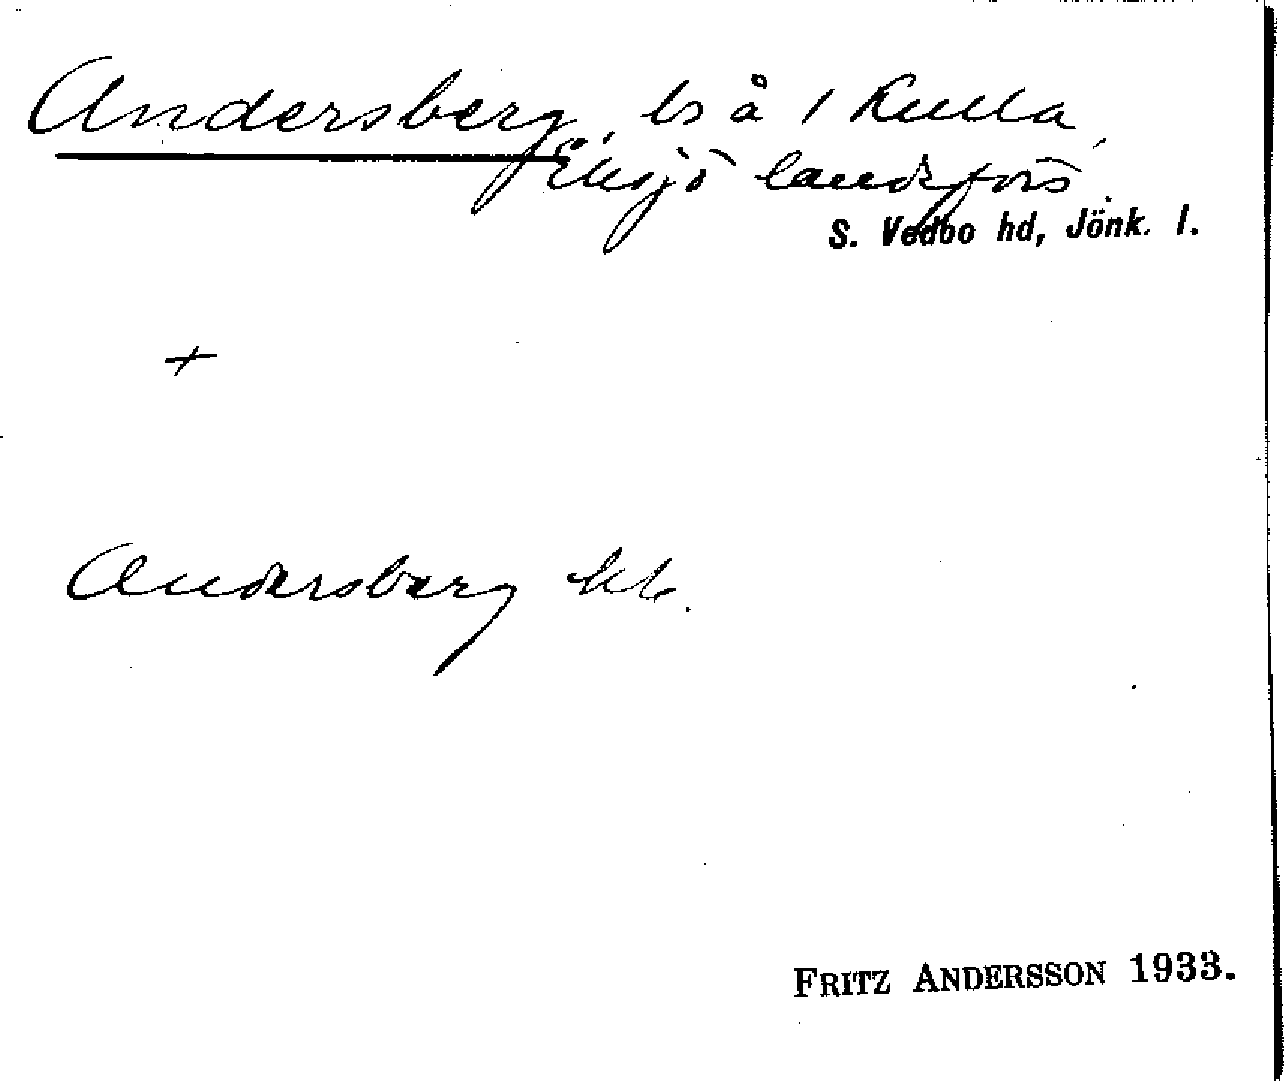 Andersberg, ls å 1 Kulla,
Eksjö landsförs.
S. Vedbo hd, Jönk. l.
+
Andersberg
FRITZ ANDERSSON 1933.